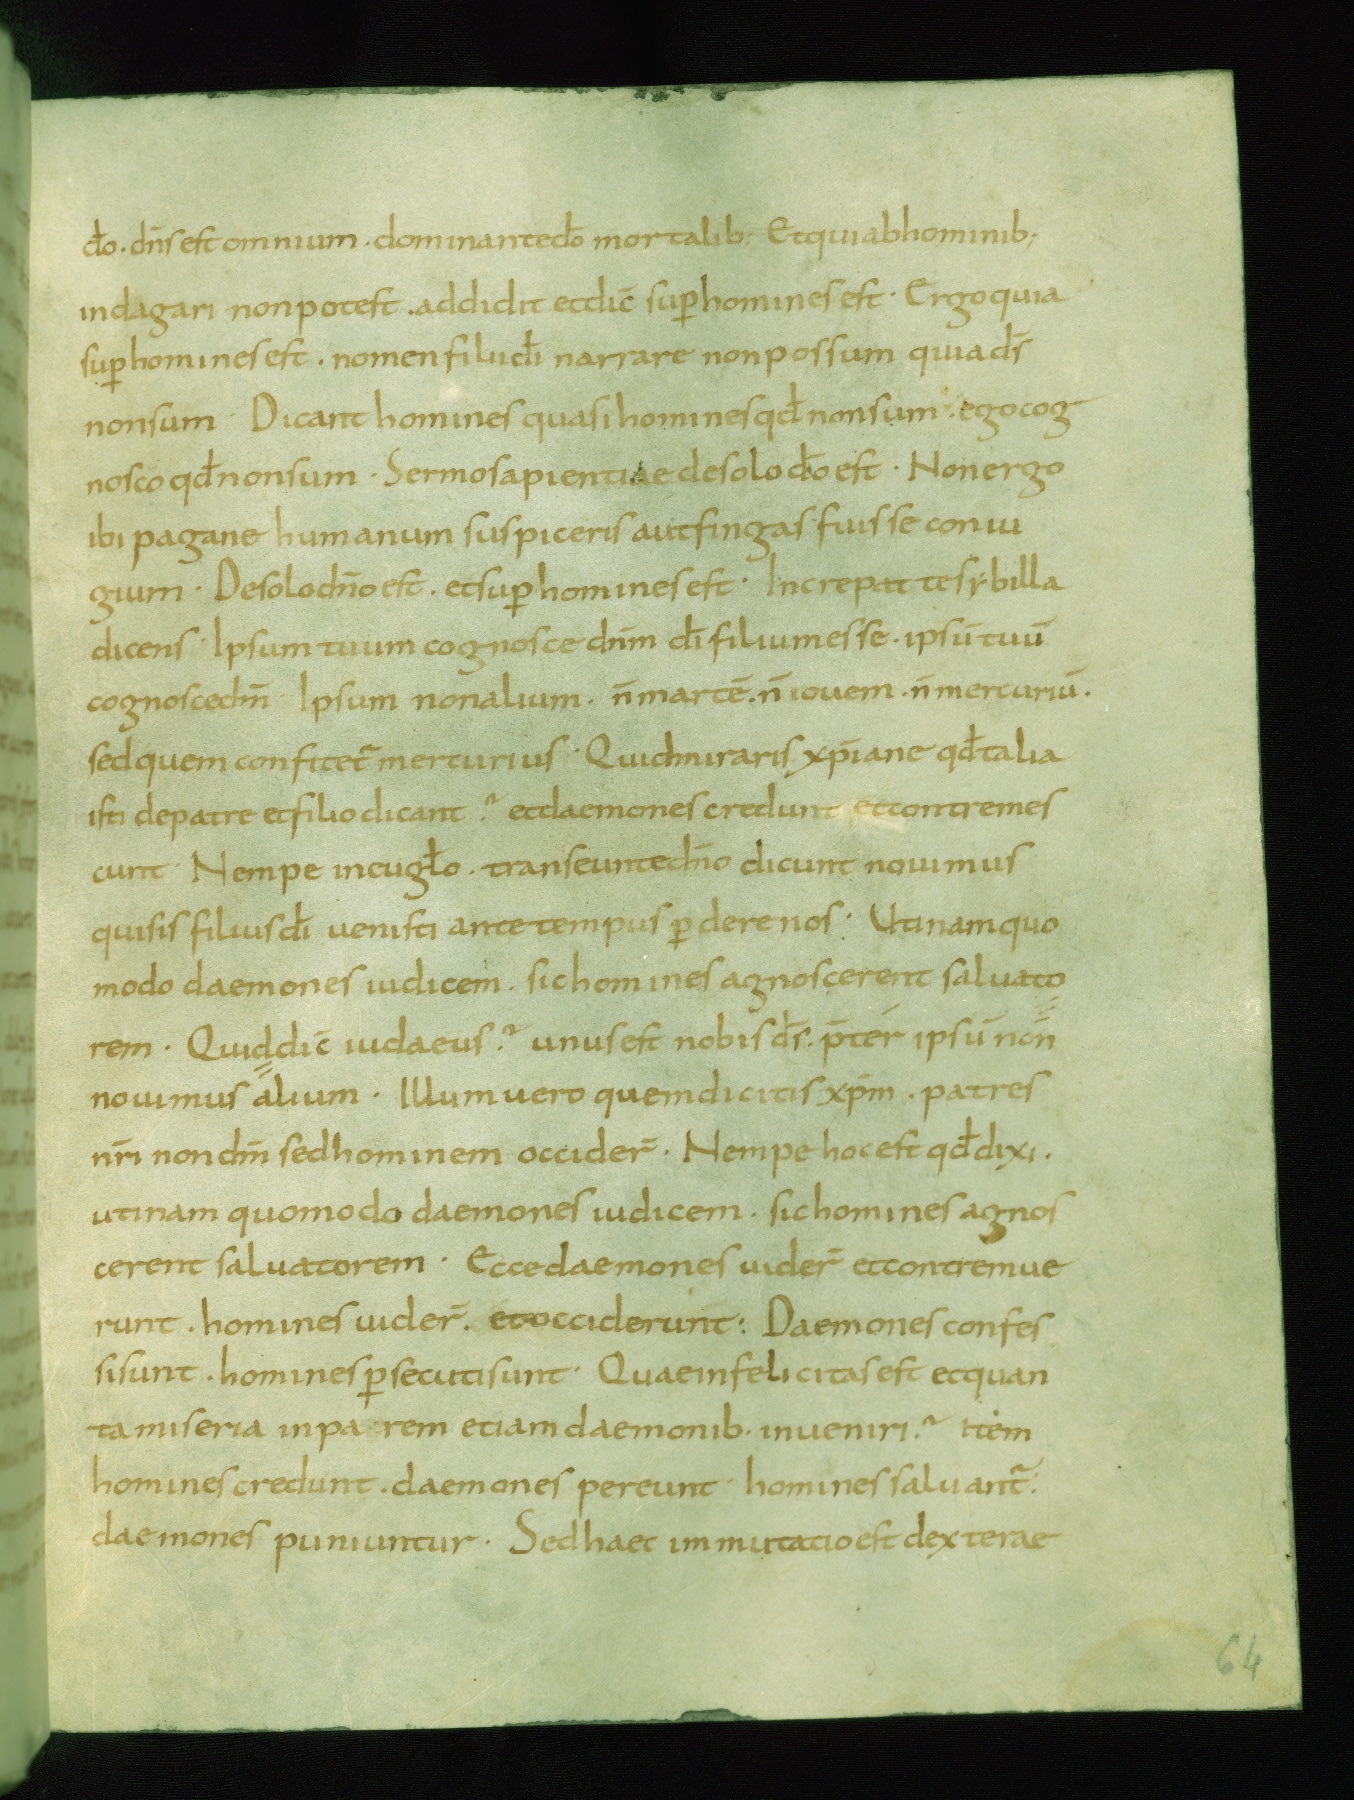 do̅ . dn̅s est omnium . dominante do̅ mortalib; Et qui ab hominib;
indagari non potest . addidit et dic̅ sup̱ homines est . Ergo quia
sup̱ homines est . nomen filii di̅ narrare non possum quia ds̅
non sum . Dicant homines quasi homines qd̅ non sum . ego cog
nosco qd̅ non sum . Sermo sapientiae de solo do̅ est . Non ergo
ibi pagane humanum suspiceris aut fingas fuisse coniu
gium . De solo dn̅o est . et sup̱ homines est . Increpat te sẏbilla
dicens . Ipsum tuum cognosce dn̅m di̅ filium esse . ipsu̅ tuu̅
cognosce dm̅ . Ipsum non alium . n̅ marte̅ . n̅ iouem . n̅ mercuriu̅ .
sed quem confitet̅ mercurius . Quid miraris xp̅iane qd̅ talia
isti de patre et filio dicant ? et daemones credunt et contremes
cunt . Nempe in eugl̅o . transeunte dn̅o dicunt nouimus
qui sis filius di̅ uenisti ante tempus p̱dere nos . Utinam quo
modo daemones iudicem . sic homines agnoscerent saluato
rem . Quid dic̅ iudaeus ? unus est nobis ds̅ . p̅ter ipsu̅ non
nouimus alium . Illum uero quem dicitis xp̅m . patres
nr̅i non dm̅ sed hominem occider̅ . Nempe hoc est qd̅ dixi .
utinam quomodo daemones iudicem . sic homines agnos
cerent saluatorem . Ecce daemones uider̅ et contremue
runt . homines uider̅ . et occiderunt : Daemones confes
si sunt . homines p̱secuti sunt . Quae infelicitas est et quan
ta miseria inpa rem etiam daemonib . inueniri ? Item
homines credunt . daemones pereunt . homines saluant̅ .
daemones puniuntur . Sed haec immutatio est dexterae
64